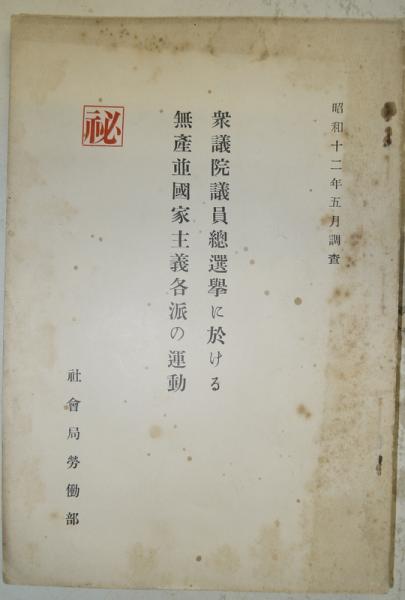 昭和十二年五月調査
衆議院議員總選擧に於ける
無產並國家主義各派の運動
祕
社會局勞働部